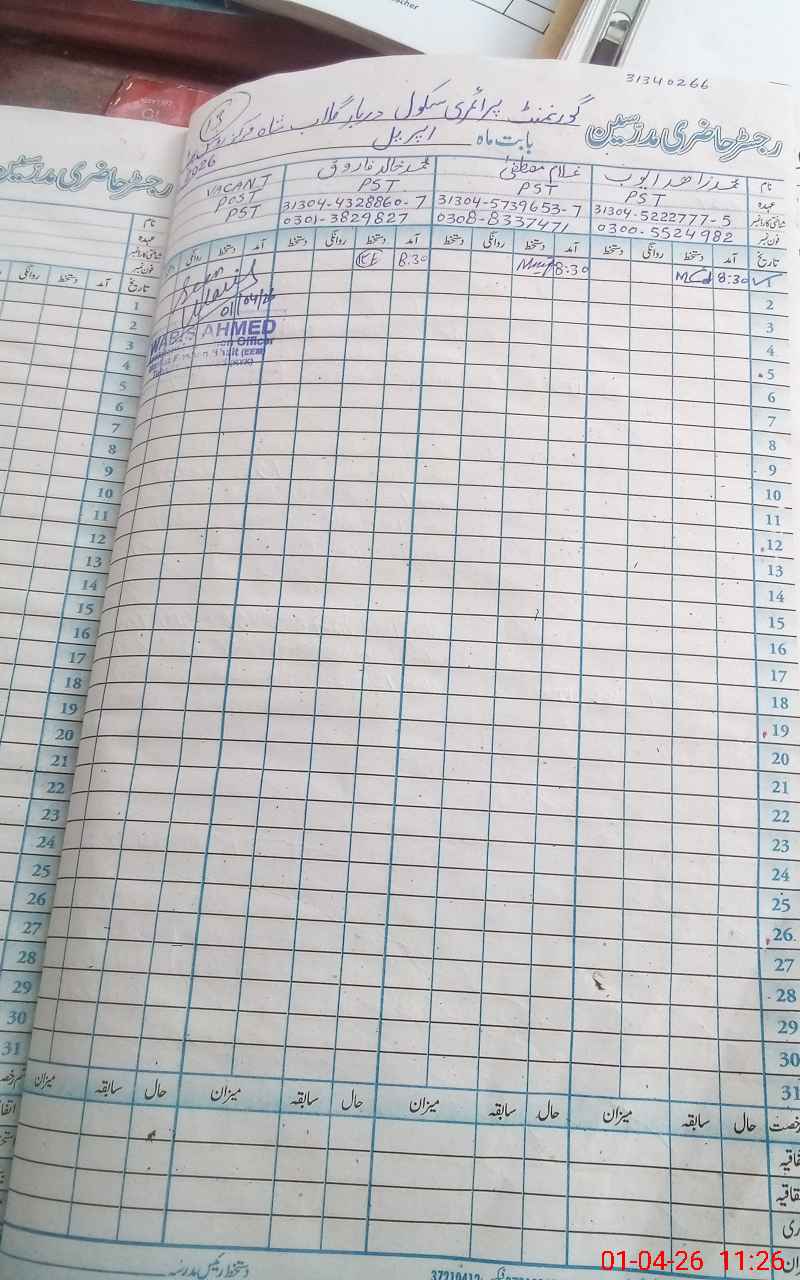 31340266
گورنمنٹ پرائمری سکول دربار گلاب شاہ مرکز
رجسٹر حاضری مدرسین بابت ماہ اپریل 2026
3
نام محمد زاھد ایوب غلام مصطفیٰ محمد خالد فاروق VACANT
عہدہ PST PST PST POST
شناختی کارڈ نمبر 31304-5222777-5 31304-5739653-7 31304-4328860-7 PST
فون نمبر 0300-5524982 0308-8337471 0301-3829827
تاریخ آمد دستخط روانگی دستخط آمد دستخط روانگی دستخط آمد دستخط روانگی دستخط آمد دستخط روانگی
1 8:30 8:30 8.30
Seen
01/04/26
2
3
AHMED
4
Officer
5
6
7
8
9
10
11
12
13
14
15
16
17
18
19
20
21
22
23
24
25
26
27
28
29
30
31
رخصت حال سابقہ میزان حال سابقہ میزان حال سابقہ میزان حال سابقہ میزان
دستخط رئیس مدرسہ
37210412
رجسٹر حاضری مدرسین
نام
عہدہ
شناختی کارڈ نمبر
فون نمبر
تاریخ آمد دستخط روانگی
1
2
3
4
5
6
7
8
9
10
11
12
13
14
15
16
17
18
19
20
21
22
23
24
25
26
27
28
29
30
31
01-04-26 11:26